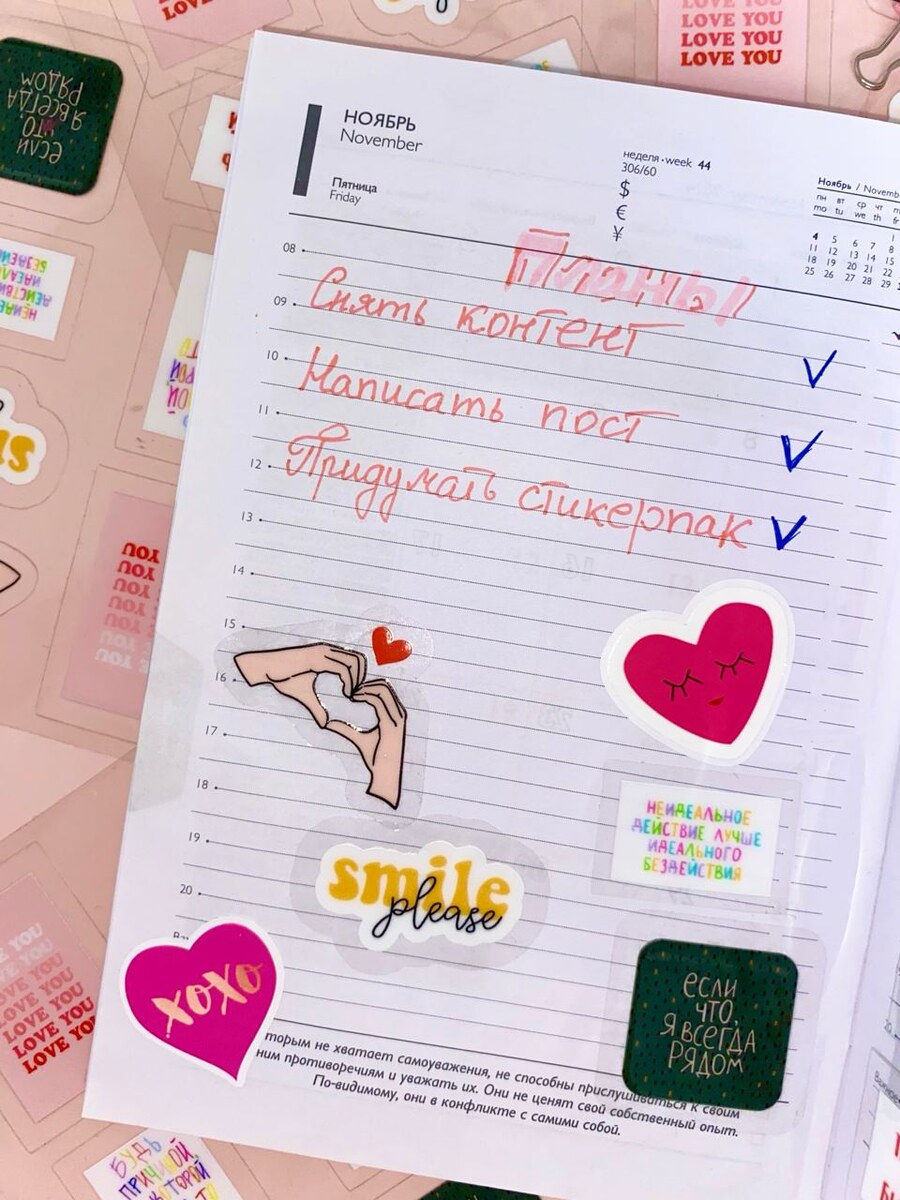 LOVE YOU
LOVE YOU
LOVE YOU
НОЯБРЬ
November
Пятница
Friday
неделя • week 44
306/60
$
€
¥
Ноябрь /
пн вт ср чт
mo tu we th
1
4 5 6 7 8
11 12 13 14 15
18 19 20 21 22
25 26 27 28 29
Планы
08
09
Снять контент
10
Написать пост
11
12
Придумать стикерпак
13
14
15
16
17
18
19
20
НЕИДЕАЛЬНОЕ
ДЕЙСТВИЕ ЛУЧШЕ
ИДЕАЛЬНОГО
БЕЗДЕЙСТВИЯ
smile
please
xoxo
если
что,
я всегда
рядом
не хватает самоуважения, не способны прислушиваться к своим
противоречиям и уважать их. Они не ценят свой собственный опыт.
По-видимому, они в конфликте с самими собой.
если
что,
я всегда
рядом
YOU
YOU
YOU
YOU
YOU
YOU
LOVE YOU
LOVE YOU
LOVE YOU
БУДЬ
ПРИЧИНОЙ,